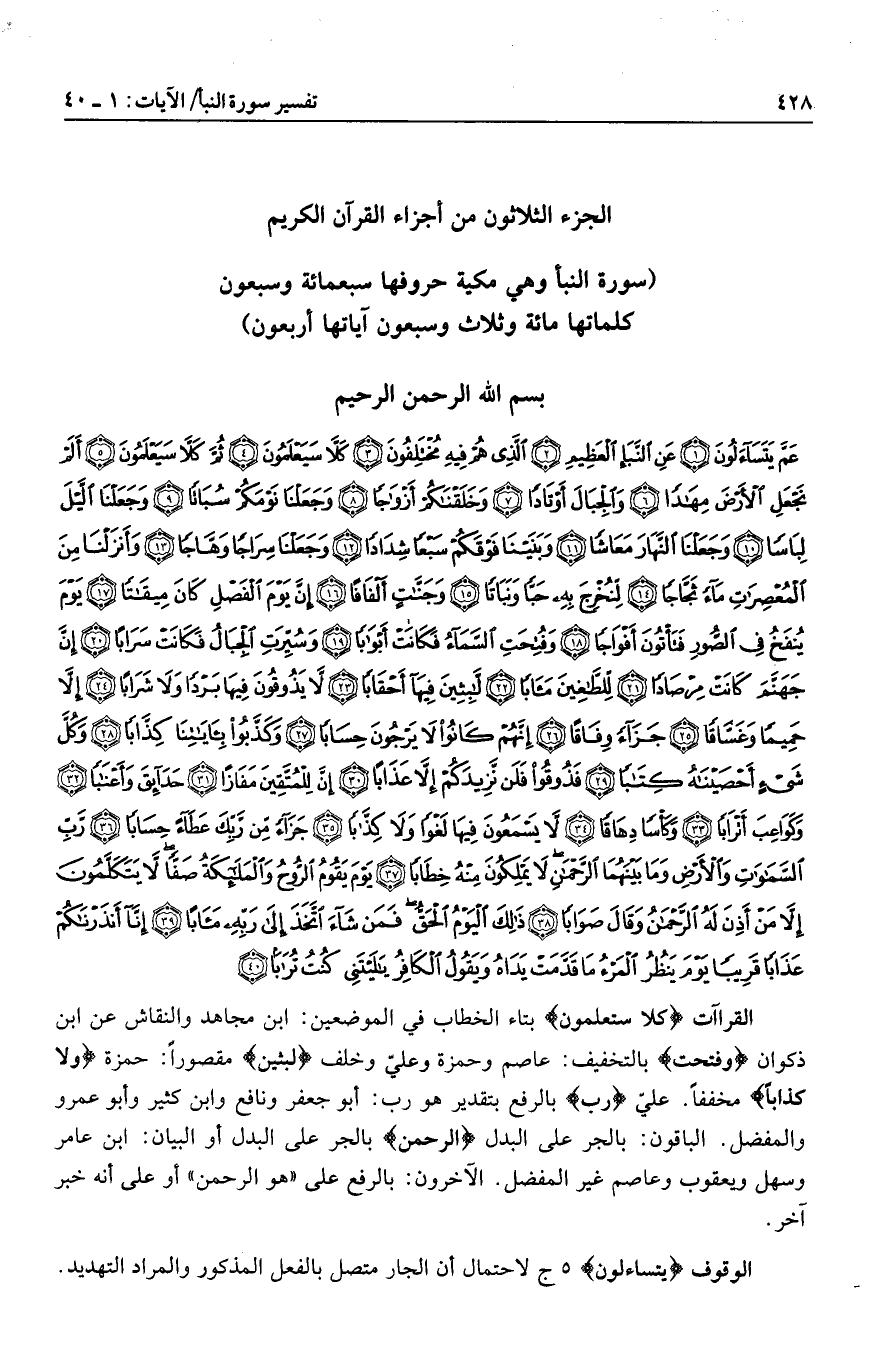 ٤٢٨ تفسير سورة النبأ/ الآيات: ١ ـ ٤٠
الجزء الثلاثون من أجزاء القرآن الكريم
(سورة النبأ وهي مكية حروفها سبعمائة وسبعون
كلماتها مائة وثلاث وسبعون آياتها أربعون)
بسم الله الرحمن الرحيم
عَمَّ يَتَسَآءَلُونَ ﴿١﴾ عَنِ ٱلنَّبَإِ ٱلْعَظِيمِ ﴿٢﴾ ٱلَّذِى هُمْ فِيهِ مُخْتَلِفُونَ ﴿٣﴾ كَلَّا سَيَعْلَمُونَ ﴿٤﴾ ثُمَّ كَلَّا سَيَعْلَمُونَ ﴿٥﴾ أَلَمْ
نَجْعَلِ ٱلْأَرْضَ مِهَٰدًا ﴿٦﴾ وَٱلْجِبَالَ أَوْتَادًا ﴿٧﴾ وَخَلَقْنَٰكُمْ أَزْوَٰجًا ﴿٨﴾ وَجَعَلْنَا نَوْمَكُمْ سُبَاتًا ﴿٩﴾ وَجَعَلْنَا ٱلَّيْلَ
لِبَاسًا ﴿١٠﴾ وَجَعَلْنَا ٱلنَّهَارَ مَعَاشًا ﴿١١﴾ وَبَنَيْنَا فَوْقَكُمْ سَبْعًا شِدَادًا ﴿١٢﴾ وَجَعَلْنَا سِرَاجًا وَهَّاجًا ﴿١٣﴾ وَأَنزَلْنَا مِنَ
ٱلْمُعْصِرَٰتِ مَآءً ثَجَّاجًا ﴿١٤﴾ لِّنُخْرِجَ بِهِۦ حَبًّا وَنَبَاتًا ﴿١٥﴾ وَجَنَّٰتٍ أَلْفَافًا ﴿١٦﴾ إِنَّ يَوْمَ ٱلْفَصْلِ كَانَ مِيقَٰتًا ﴿١٧﴾ يَوْمَ
يُنفَخُ فِى ٱلصُّورِ فَتَأْتُونَ أَفْوَاجًا ﴿١٨﴾ وَفُتِحَتِ ٱلسَّمَآءُ فَكَانَتْ أَبْوَٰبًا ﴿١٩﴾ وَسُيِّرَتِ ٱلْجِبَالُ فَكَانَتْ سَرَابًا ﴿٢٠﴾ إِنَّ
جَهَنَّمَ كَانَتْ مِرْصَادًا ﴿٢١﴾ لِّلطَّٰغِينَ مَـَٔابًا ﴿٢٢﴾ لَّٰبِثِينَ فِيهَآ أَحْقَابًا ﴿٢٣﴾ لَّا يَذُوقُونَ فِيهَا بَرْدًا وَلَا شَرَابًا ﴿٢٤﴾ إِلَّا
حَمِيمًا وَغَسَّاقًا ﴿٢٥﴾ جَزَآءً وِفَاقًا ﴿٢٦﴾ إِنَّهُمْ كَانُوا۟ لَا يَرْجُونَ حِسَابًا ﴿٢٧﴾ وَكَذَّبُوا۟ بِـَٔايَٰتِنَا كِذَّابًا ﴿٢٨﴾ وَكُلَّ
شَىْءٍ أَحْصَيْنَٰهُ كِتَٰبًا ﴿٢٩﴾ فَذُوقُوا۟ فَلَن نَّزِيدَكُمْ إِلَّا عَذَابًا ﴿٣٠﴾ إِنَّ لِلْمُتَّقِينَ مَفَازًا ﴿٣١﴾ حَدَآئِقَ وَأَعْنَٰبًا ﴿٣٢﴾
وَكَوَاعِبَ أَتْرَابًا ﴿٣٣﴾ وَكَأْسًا دِهَاقًا ﴿٣٤﴾ لَّا يَسْمَعُونَ فِيهَا لَغْوًا وَلَا كِذَّٰبًا ﴿٣٥﴾ جَزَآءً مِّن رَّبِّكَ عَطَآءً حِسَابًا ﴿٣٦﴾ رَّبِّ
ٱلسَّمَٰوَٰتِ وَٱلْأَرْضِ وَمَا بَيْنَهُمَا ٱلرَّحْمَٰنِ ۖ لَا يَمْلِكُونَ مِنْهُ خِطَابًا ﴿٣٧﴾ يَوْمَ يَقُومُ ٱلرُّوحُ وَٱلْمَلَٰٓئِكَةُ صَفًّا ۖ لَّا يَتَكَلَّمُونَ
إِلَّا مَنْ أَذِنَ لَهُ ٱلرَّحْمَٰنُ وَقَالَ صَوَابًا ﴿٣٨﴾ ذَٰلِكَ ٱلْيَوْمُ ٱلْحَقُّ ۖ فَمَن شَآءَ ٱتَّخَذَ إِلَىٰ رَبِّهِۦ مَـَٔابًا ﴿٣٩﴾ إِنَّآ أَنذَرْنَٰكُمْ
عَذَابًا قَرِيبًا يَوْمَ يَنظُرُ ٱلْمَرْءُ مَا قَدَّمَتْ يَدَاهُ وَيَقُولُ ٱلْكَافِرُ يَٰلَيْتَنِى كُنتُ تُرَٰبًۢا ﴿٤٠﴾
القراآت ﴿كلا ستعلمون﴾ بتاء الخطاب في الموضعين: ابن مجاهد والنقاش عن ابن
ذكوان ﴿وفتحت﴾ بالتخفيف: عاصم وحمزة وعليّ وخلف ﴿لبثين﴾ مقصوراً: حمزة ﴿ولا
كذاباً﴾ مخففاً. عليّ ﴿رب﴾ بالرفع بتقدير هو رب: أبو جعفر ونافع وابن كثير وأبو عمرو
والمفضل. الباقون: بالجر على البدل ﴿الرحمن﴾ بالجر على البدل أو البيان: ابن عامر
وسهل ويعقوب وعاصم غير المفضل. الآخرون: بالرفع على «هو الرحمن» أو على أنه خبر
آخر.
الوقوف ﴿يتساءلون﴾ ٥ ج لاحتمال أن الجار متصل بالفعل المذكور والمراد التهديد.